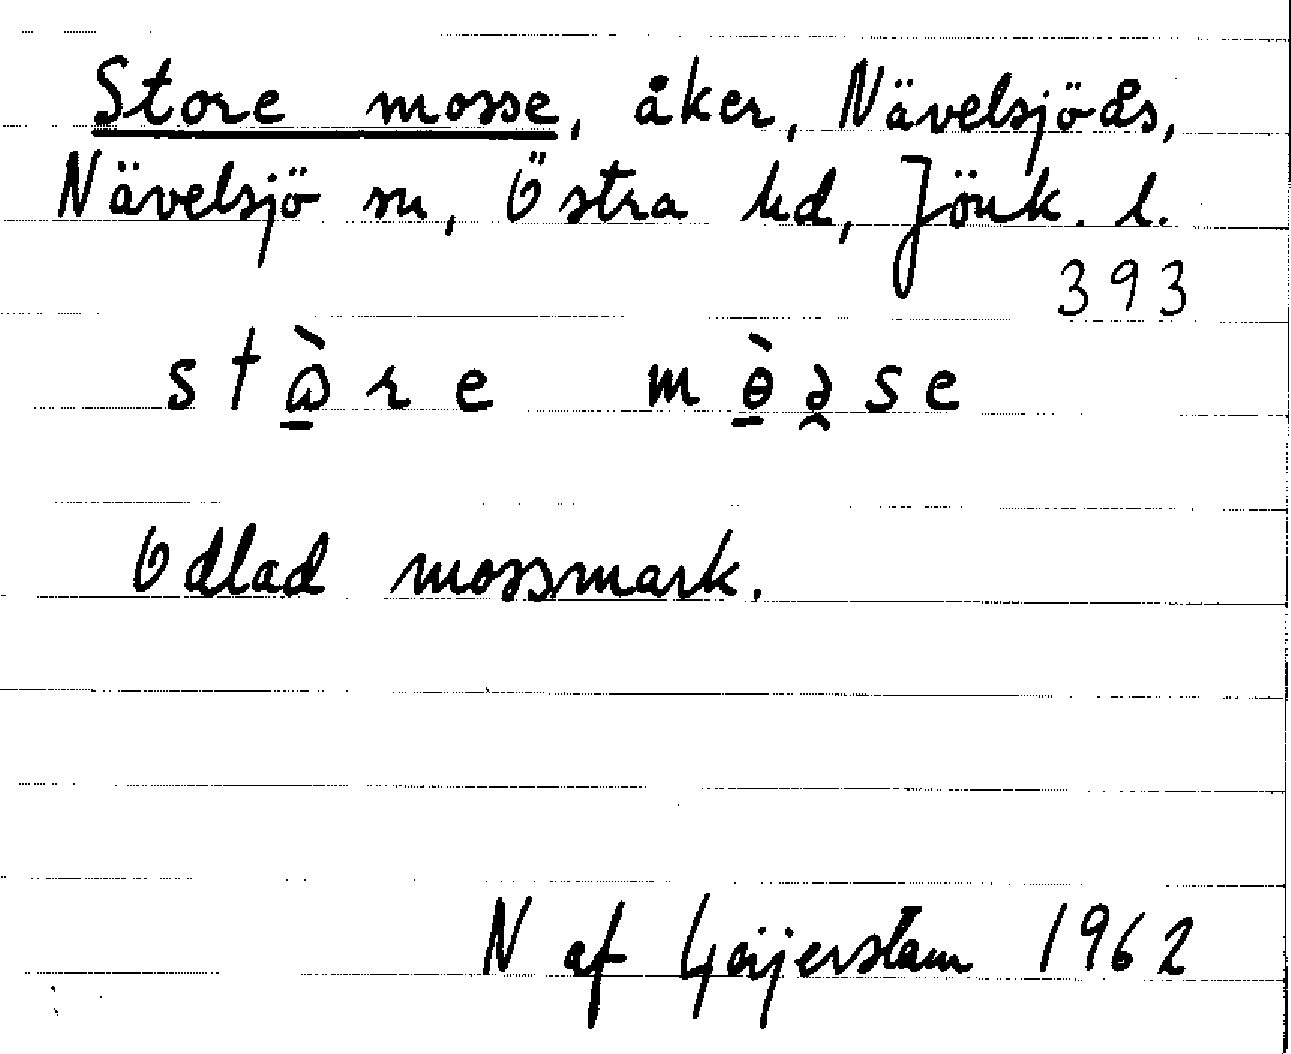 Store mosse, åker, Nävelsjöås,
Nävelsjö sn, Östra hd, Jönk. l.
393
Odlad mossmark.
N af Geijerstam 1962